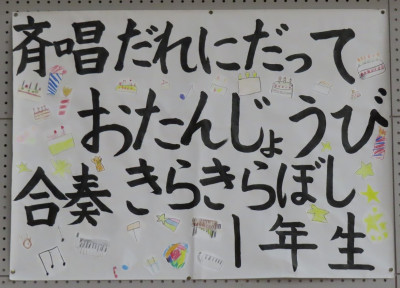 斉唱だれにだって
おたんじょうび
合奏きらきらぼし
1年生